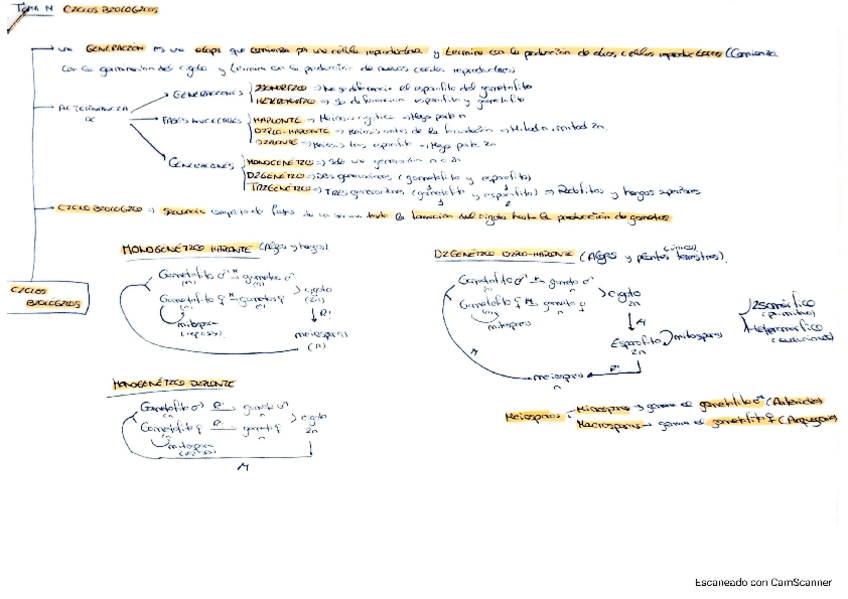 TEMA IV CICLOS BIOLÓGICOS
Una GENERACIÓN es una etapa que comienza por una célula reproductora y termina con la producción de otras células reproductoras (Comienza
con la germinación del cigoto y termina con la producción de nuevas células reproductoras)
ALTERNANCIA DE
GENERACIONES
ISOMÓRFICO => No se diferencia el esporofito del gametofito
HETEROMÓRFICO => Se diferencian esporofito y gametofito
FASES NUCLEARES
HAPLONTE => Meiosis cigótica → Mayor parte n
DIPLO-HAPLONTE => Meiosis antes de la → Mitad n, mitad 2n.
DIPLONTE => Meiosis → Mayor parte 2n
GENERACIONES
MONOGENÉTICO => Solo una generación n o 2n
DIGENÉTICO => Dos generaciones (gametofito y esporofito)
TRIGENÉTICO => TRES generaciones (gametofito y esporofito) => Rodofitos y hongos superiores
1 2
CICLO BIOLÓGICO => Secuencia completa de fases de un organismo desde la formación del cigoto hasta la producción de gametos
CICLOS BIOLÓGICOS
MONOGENÉTICO HAPLONTE (Algas y hongos).
Gametofito ♂ M gametos ♂
(n) (n)
Gametofito ♀ M gametos ♀
(n)
cigoto
(2n)
↓ R!
meiosporas
(n)
mitosporas
DIGENÉTICO DIPLO-HAPLONTE (Algas y plantas terrestres).
Gametofito ♂ M gameto ♂
n
Gametofito ♀ M gameto ♀
(n) n
mitosporas
cigoto
2n
↓ M
Esporofito mitosporas
2n
R!
meiosporas
n
M
Isomórfico
(primitivo)
Heteromórfico
MONOGENÉTICO DIPLONTE
Gametofito ♂ R! gameto ♂
n
Gametofito ♀ R! gameto ♀
n
cigoto
2n
mitosporas
M
Meiosporas
Microsporas → genera el gametofito ♂ (Anteridio)
Macrosporas → genera el gametofito ♀ (Arquegonio)
Escaneado con CamScanner